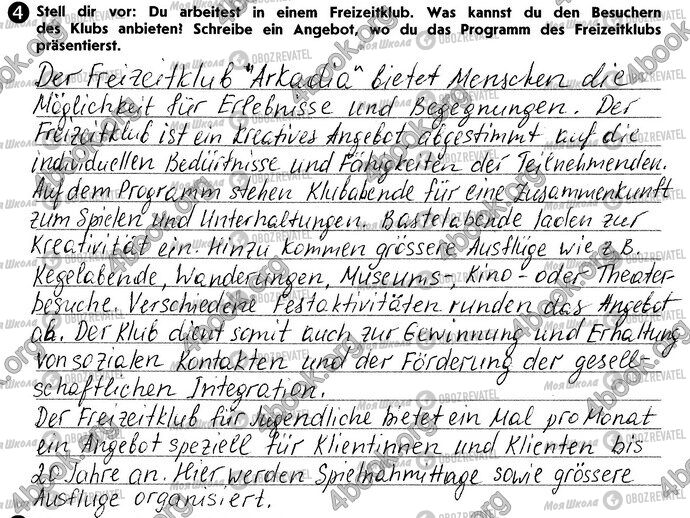 4 Stell dir vor: Du arbeitest in einem Freizeitklub. Was kannst du den Besuchern
des Klubs anbieten? Schreibe ein Angebot, wo du das Programm des Freizeitklubs
präsentierst.
Der Freizeitklub "Arkadia" bietet Menschen die
Möglichkeit für Erlebnisse und Begegnungen. Der
Freizeitklub ist ein kreatives Angebot, abgestimmt auf die
individuellen Bedürfnisse und Fähigkeiten der Teilnehmenden.
Auf dem Programm stehen Klubabende für eine Zusammenkunft
zum Spielen und Unterhaltungen. Bastelabende laden zur
Kreativität ein. Hinzu kommen grössere Ausflüge wie z.B.
Kegelabende, Wanderungen, Museums-, Kino- oder Theater-
besuche. Verschiedene Festaktivitäten runden das Angebot
ab. Der Klub dient somit auch zur Gewinnung und Erhaltung
von sozialen Kontakten und der Förderung der gesell-
schaftlichen Integration.
Der Freizeitklub für Jugendliche bietet ein Mal pro Monat
ein Angebot speziell für Klientinnen und Klienten bis
20 Jahre an. Hier werden Spielnahmittage sowie grössere
Ausflüge organisiert.